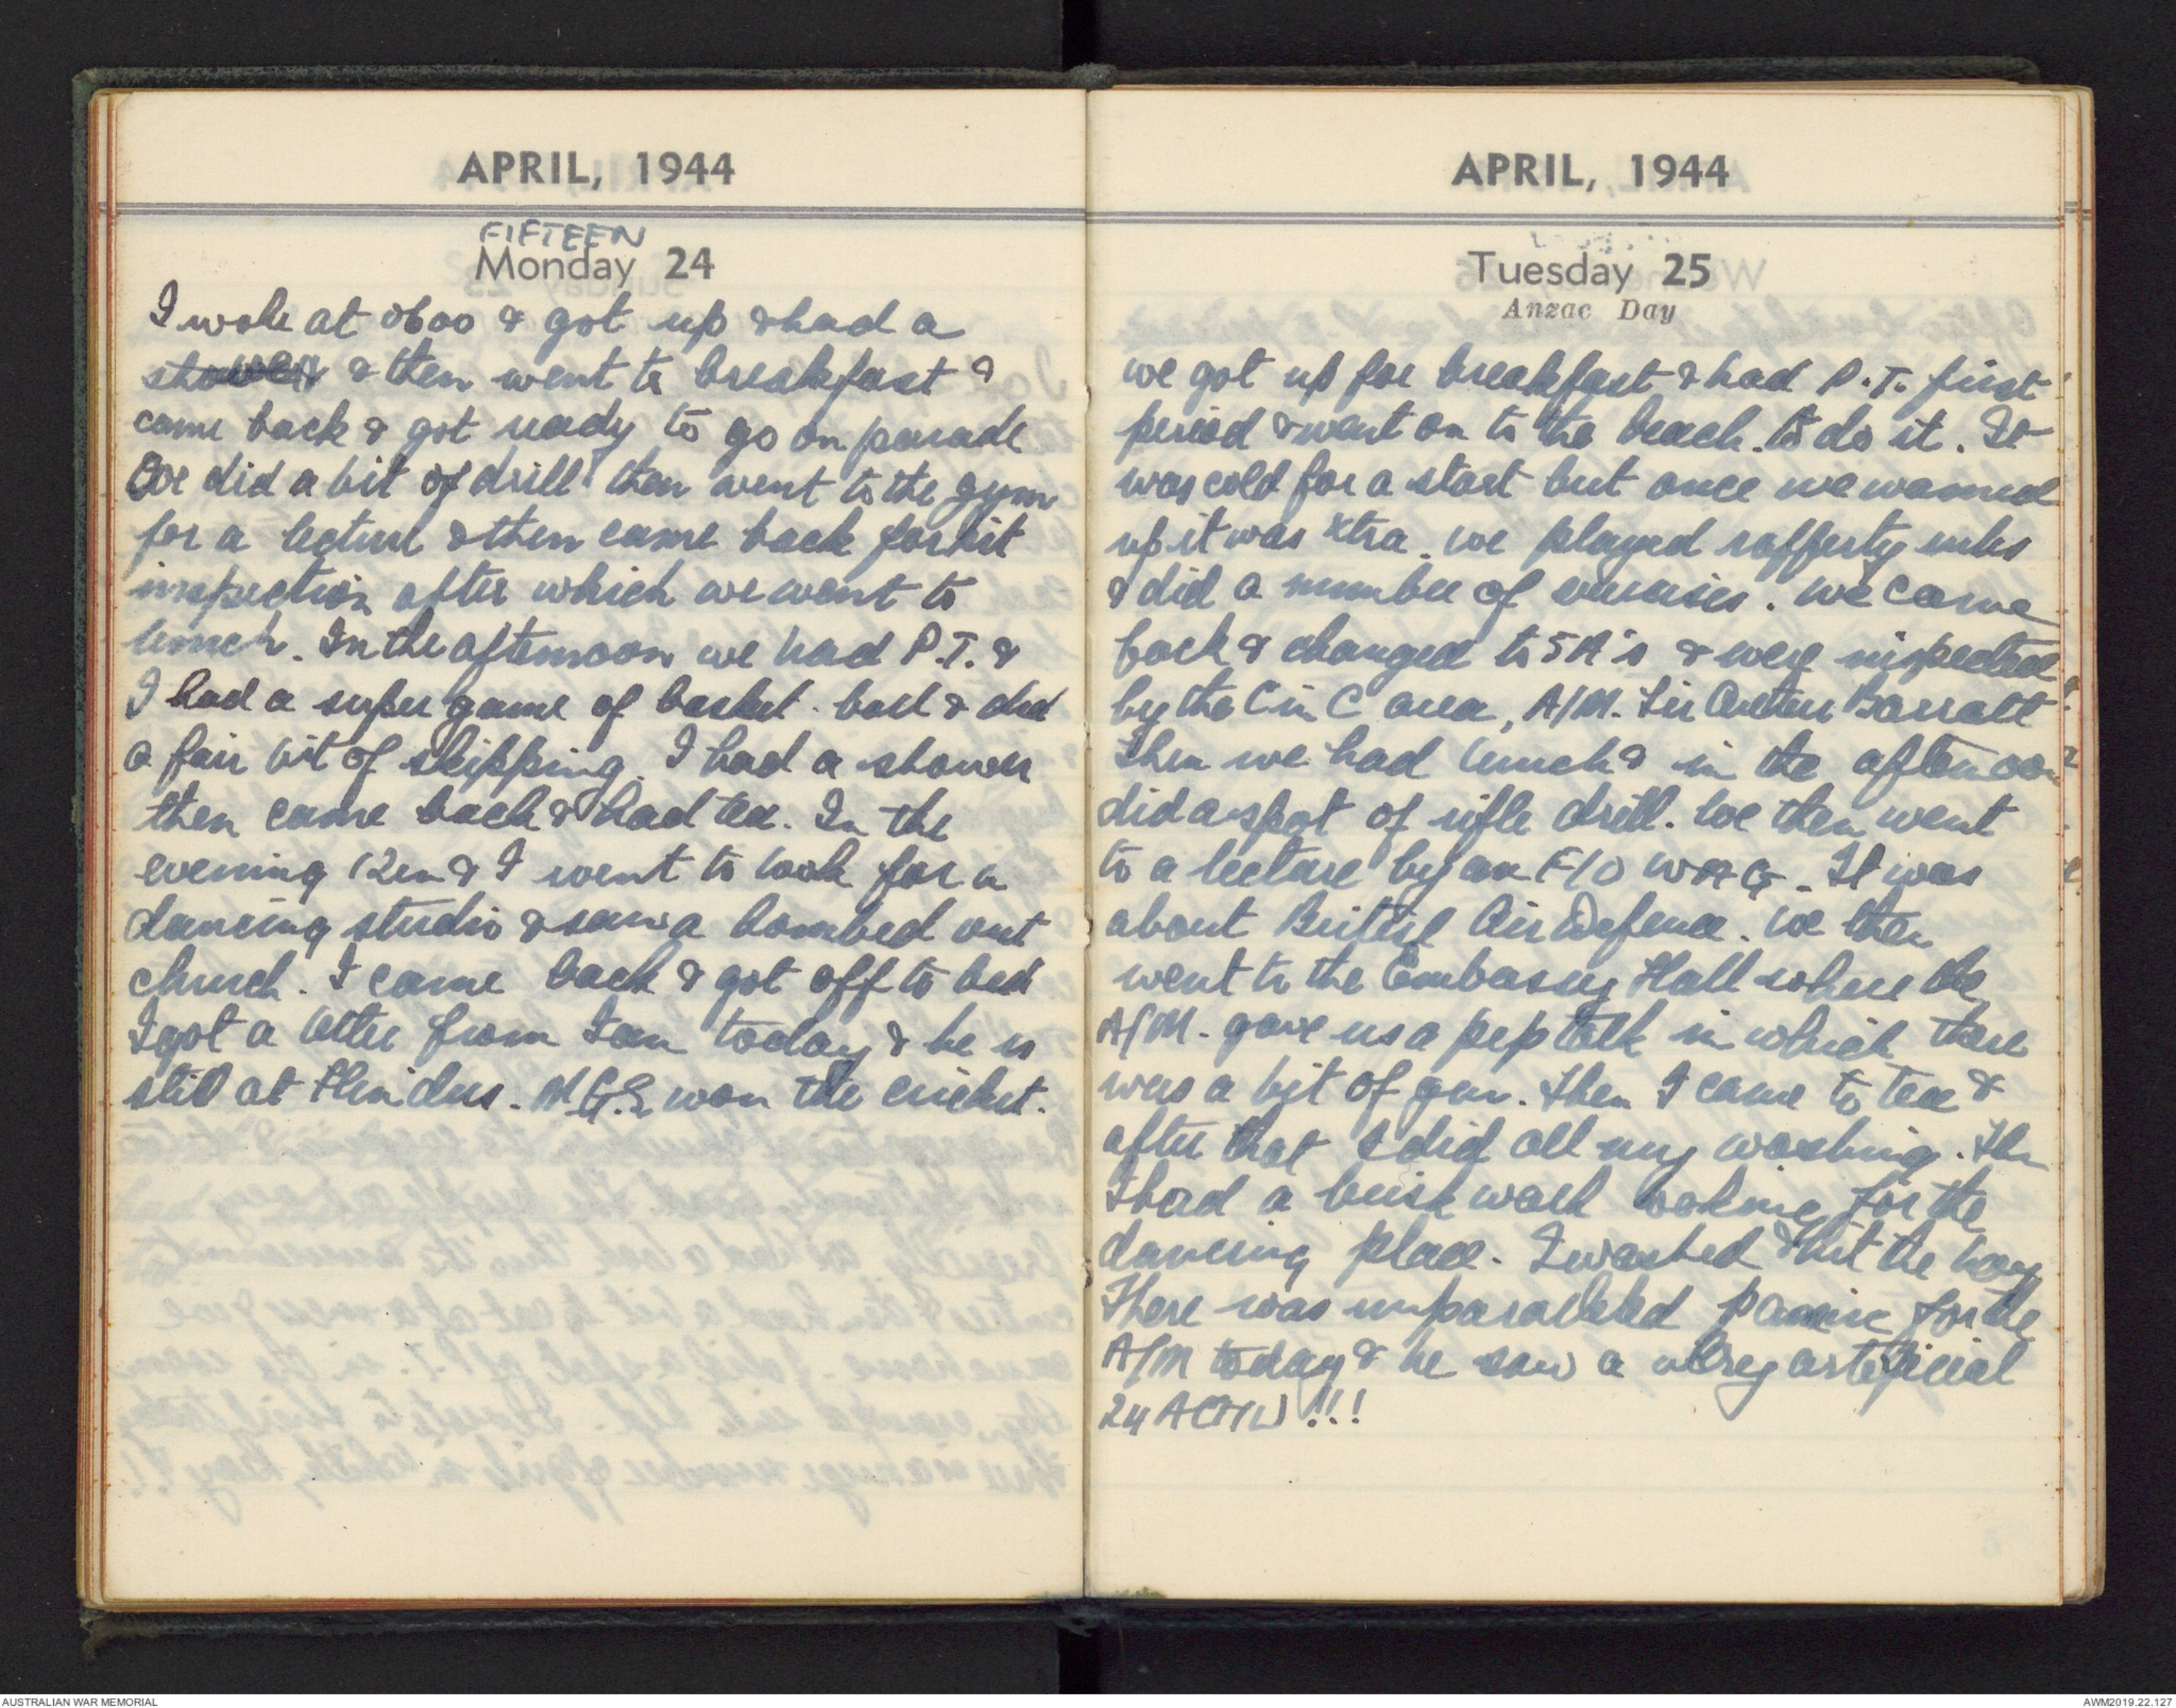 APRIL, 1944
FIFTEEN
Monday 24
I woke at 0600 & got up & had a
shower & then went to breakfast &
came back & got ready to go on parade
We did a bit of drill then went to the gym
for a lecture & then came back for kit
inspection after which we went to
lunch. In the afternoon we had P.T. &
I had a super game of basket-ball & did
a fair bit of skipping. I had a shower
then came back & had tea. In the
evening Ken & I went to look for a
dancing studio & saw a bombed out
church. I came back & got off to bed
I got a letter from Ian today & he is
still at Flinders. M.G.S won the cricket.
APRIL, 1944
Tuesday 25
Anzac Day
we got up for breakfast & had P.T. first
period & went on to the beach to do it. It
was cold for a start but once we warmed
up it was xtra. we played rafferty rules
& did a number of exercises. we came
back & changed to 5A's & were inspected
by the C in C area, A/M. Sir Arthur Barratt
Then we had lunch & in the afternoon
did a spot of rifle drill. We then went
to a lecture by an F/O WAG. It was
about British Air Defence. We then
went to the Embassy Hall where the
A/M. gave us a pep talk in which there
was a bit of gen. Then I came to tea &
after that I did all my washing. Then
I had a brisk walk looking for the
dancing place. I washed & hit the hay
There was unparalleled panic for the
A/M today & he saw a very artificial
24 ACHU !!!
AUSTRALIAN WAR MEMORIAL
AWM2019.22.127